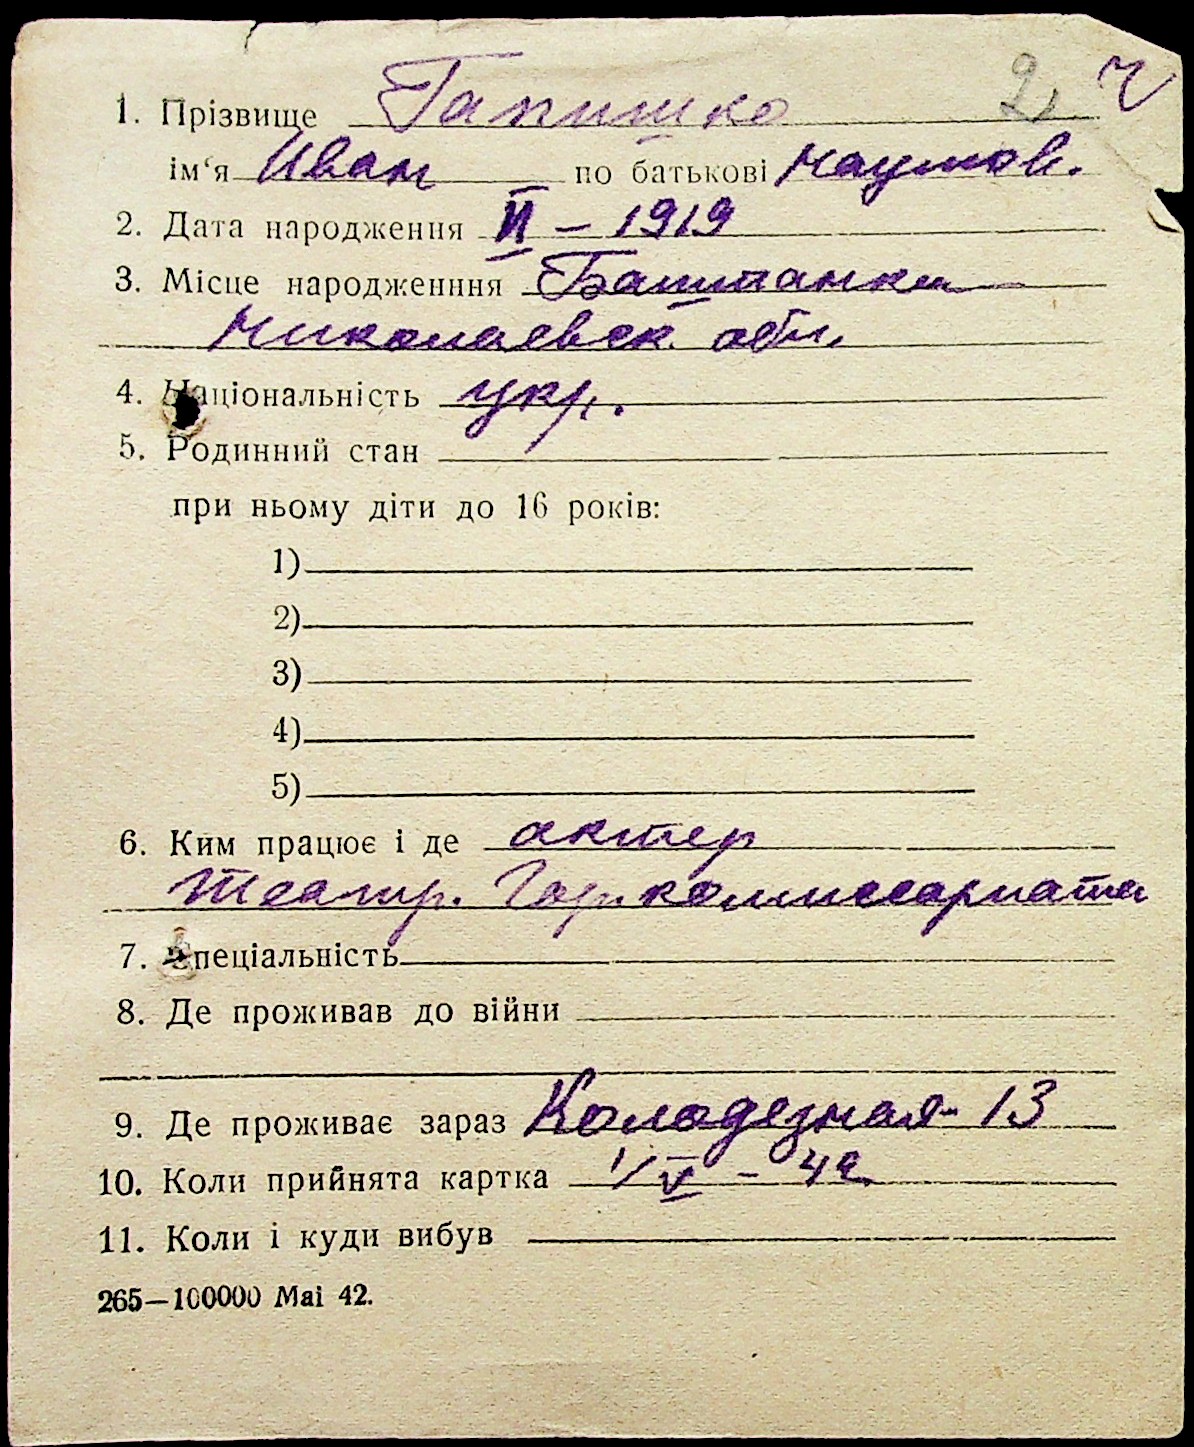 ч
1. Прізвище Гапишко
ім‘я Иван по батькові Наумов.
2. Дата народження VI – 1919
3. Місце народженння Баштанки
Николаевск. обл.
4. Національність укр.
5. Родинний стан
при ньому діти до 16 років:
1)
2)
3)
4)
5)
6. Ким працює і де актер
Театр. Гор. комиссариата
7. Спеціальність
8. Де проживав до війни
9. Де проживає зараз Колодезная 13
10. Коли прийнята картка 1/V – 42
11. Коли і куди вибув
265—100000 Mai 42.